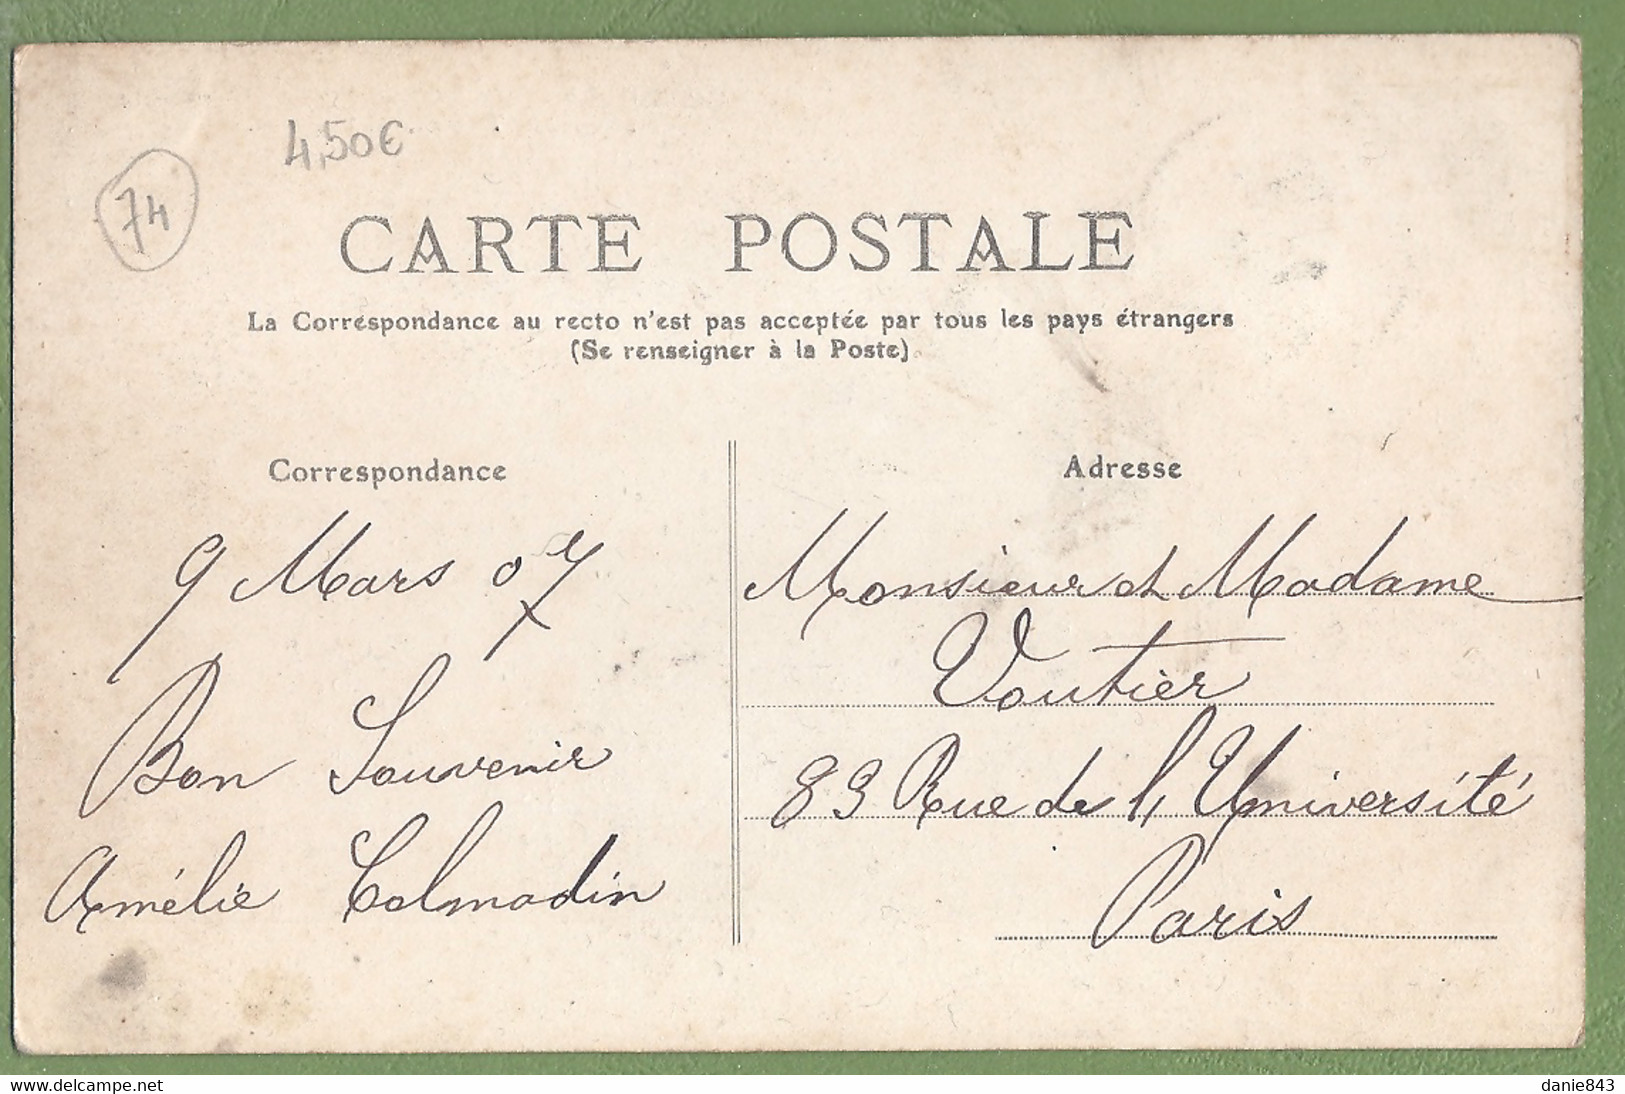 4,50€
74
CARTE POSTALE
La Correspondance au recto n'est pas acceptée par tous les pays étrangers
(Se renseigner à la Poste)
Correspondance
9 Mars 07
Bon Souvenir
Amélie Colmadin
Adresse
Monsieur et Madame
Voutier
83 Rue de l'Université
Paris
danie843